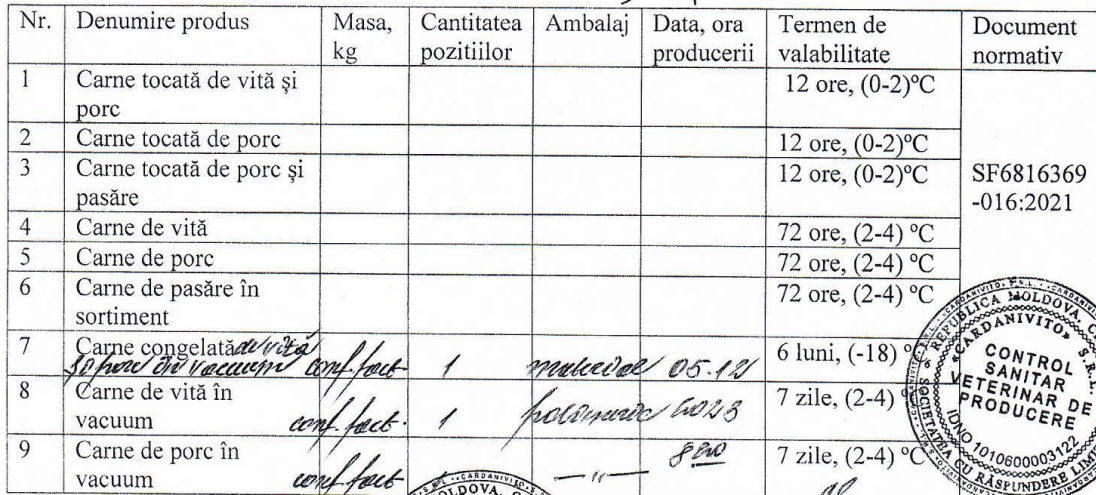 Nr. Denumire produs Masa, kg Cantitatea pozitiilor Ambalaj Data, ora producerii Termen de valabilitate Document normativ
1 Carne tocată de vită şi porc 12 ore, (0-2)ºC
2 Carne tocată de porc 12 ore, (0-2)ºC
3 Carne tocată de porc şi pasăre 12 ore, (0-2)ºC SF6816369 -016:2021
4 Carne de vită 72 ore, (2-4) ºC
5 Carne de porc 72 ore, (2-4) ºC
6 Carne de pasăre în sortiment 72 ore, (2-4) ºC
7 Carne congelată de vită în vacuum conf. fact. 1 material 05.12 6 luni, (-18) º
8 Carne de vită în vacuum conf. fact. 1 7 zile, (2-4) º
9 Carne de porc în vacuum conf. fact. —"— 7 zile, (2-4) ºC
REPUBLICA MOLDOVA
«CARDANIVITO» S.R.L.
CONTROL
SANITAR
VETERINAR DE
PRODUCERE
IDNO 1010600003122
SOCIETATEA CU RĂSPUNDERE
CARDANIVITO
MOLDOVA